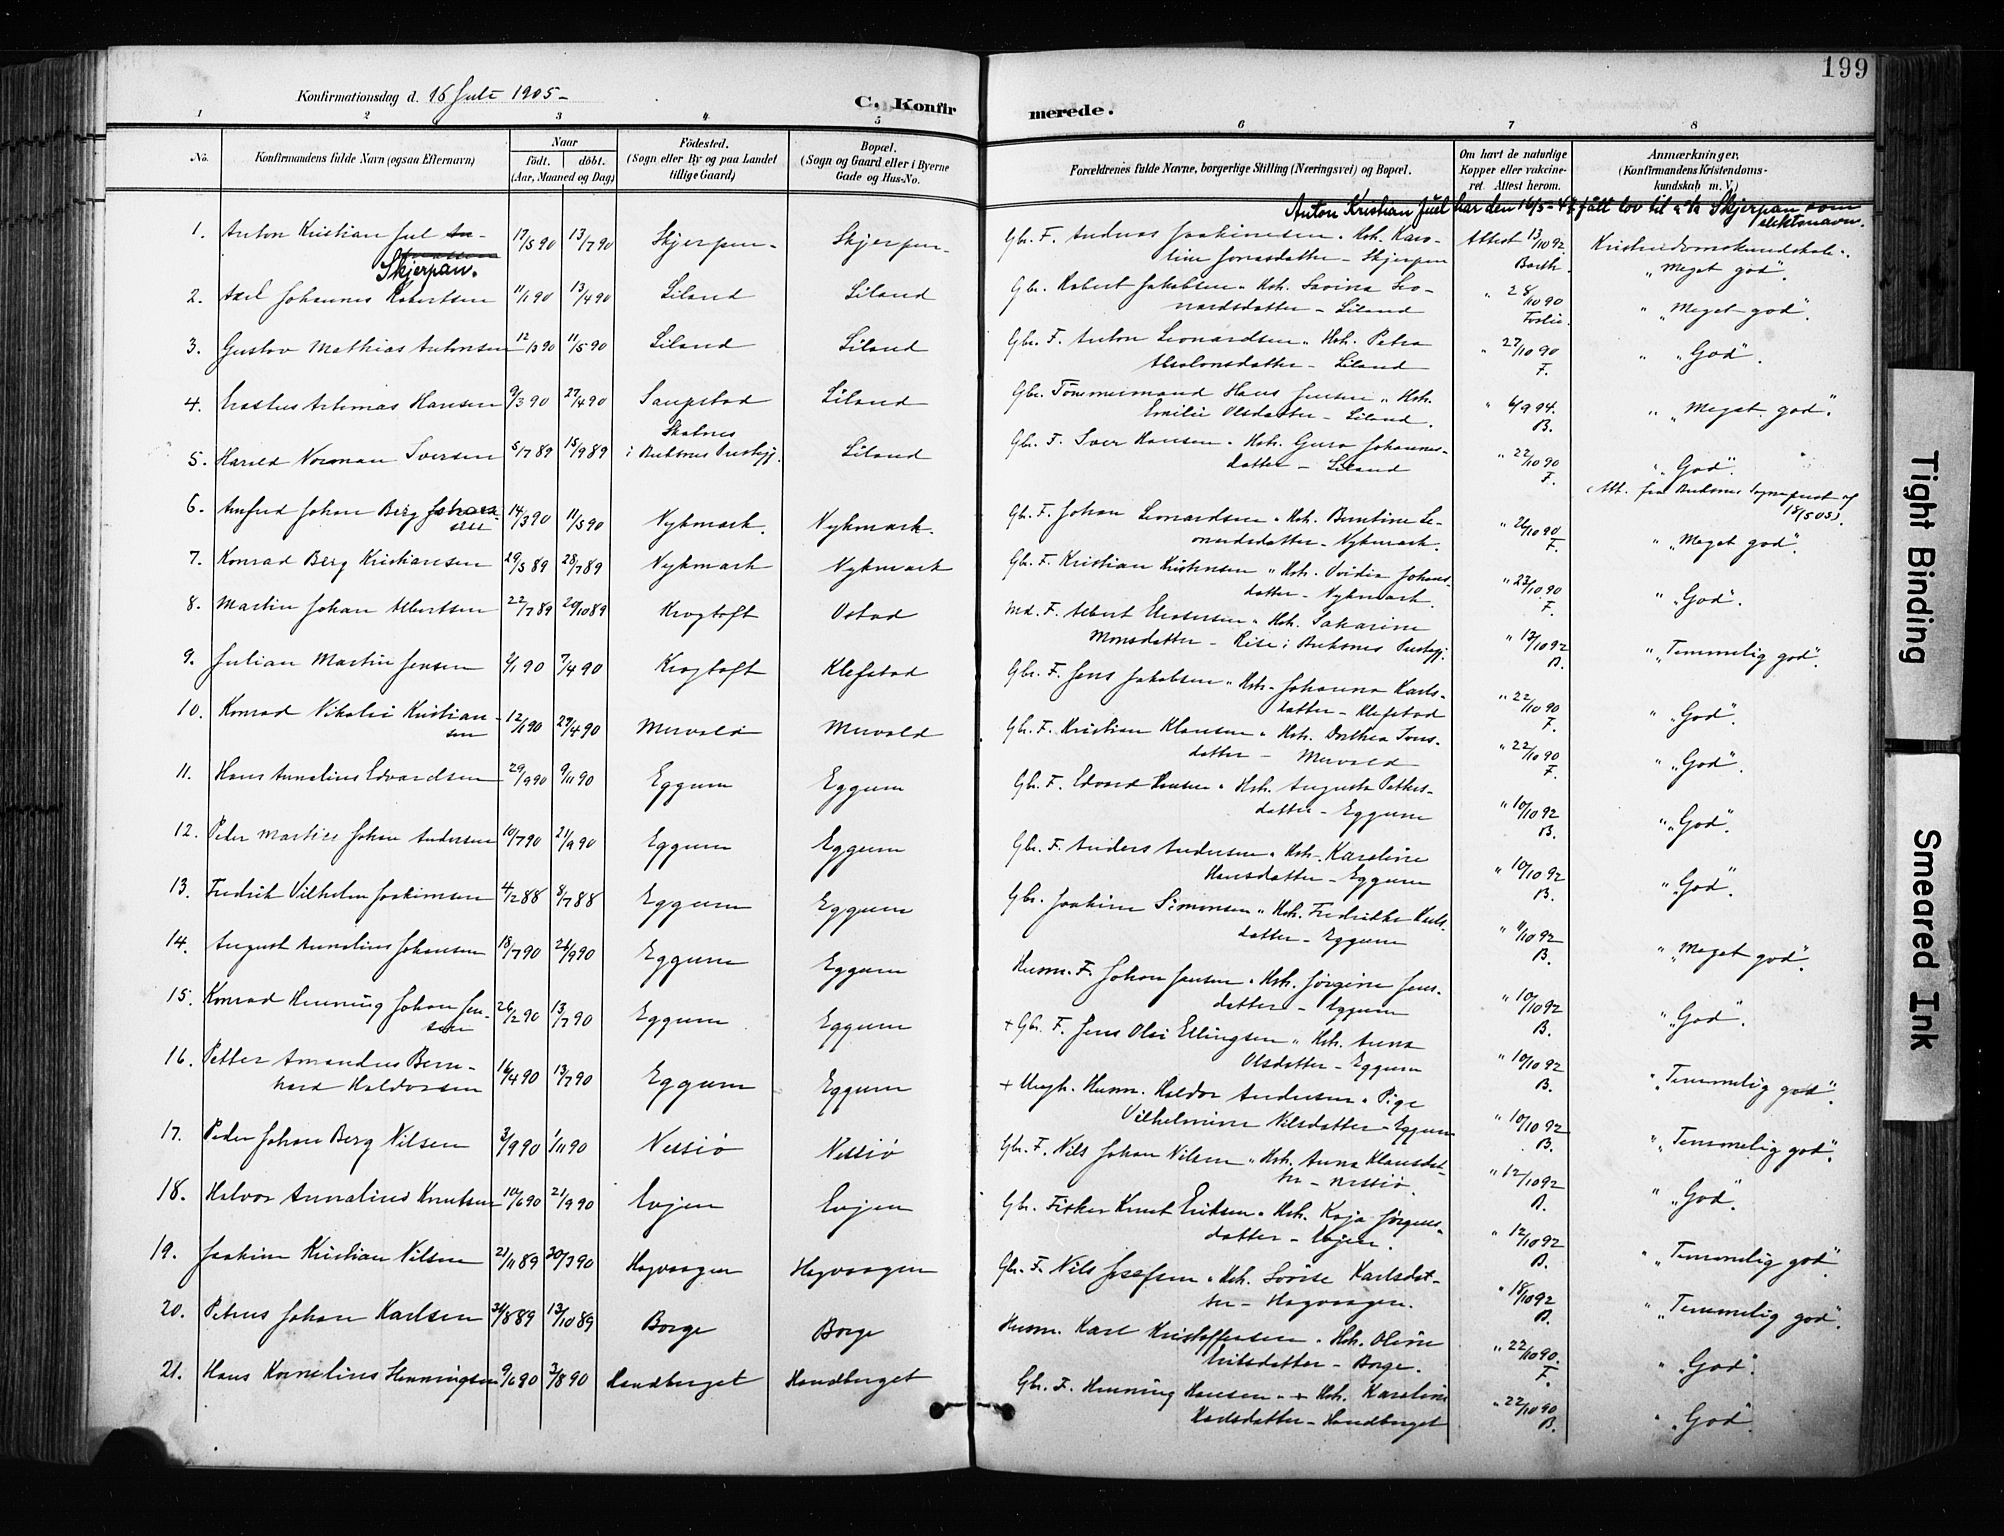 199
Konfirmationsdag d. 16 Juli 1905 -
C. Konfirmerede.
1 2 3 4 5 6 7 8
No. Konfirmandens fulde Navn (ogsaa Efternavn) Naar født. døbt. (Aar, Maaned og Dag) Fødested. (Sogn eller By og paa Landet tillige Gaard) Bopæl. (Sogn og Gaard eller i Byerne Gade og Hus-No. Forældrenes fulde Navne, borgerlige Stilling (Næringsvei) og Bopæl. Om havt de naturlige Kopper eller vaccineret. Attest herom. Anmærkninger. (Konfirmandens Kristendomskundskab m. V.)
Anton Kristian Juel har den 16/5-47 fått lov til å ta Skjerpan som slektsnavn.
1. Anton Kristian Jul Skjerpan. 17/5 90 13/7 90 Skjerpen - Skjerpen - Gbr. F. Andreas Joakimsen " Hst. Karoline Jonasdatter - Skjerpen Attest 13/10 92 Barth. Kristendomskundskab: "Meget god".
2. Axel Johannes Robertsen 11/1 90 13/4 90 Liland Liland Gbr. Robert Jakobsen " Hst. Lovina Leonardsdatter - Liland " 28/10 90 Foslie. " "Meget god".
3. Gustav Mathias Antonsen 12/3 90 11/5 90 Liland Liland Gbr. F. Anton Leonardsen " Hst. Petra Absalonsdatter - Liland " 27/10 90 F. " "God".
4. Erastus Artemas Hansen 9/3 90 27/4 90 Saupstad Liland Gbr. Tømmermand Hans Jensen " Hst. Emilie Olsdatter - Liland. " 6/9 94. B. " "Meget god".
5. Harald Norman Iversen 5/7 89 15/9 89 Skatnes i Buksnes Prestegj. Liland Gbr. F. Iver Hansen " Hst. Gura Johannesdatter - Liland " 22/10 90 F. " "God".
Att. fra Buksnes Sogneprest af 18/5 05).
6. Anfred Johan Berg Johansen 14/3 90 11/5 90 Nykmark. Nykmark. Gbr. F. Johan Leonardsen " Hst. Berntine Leonardsdatter - Nykmark. " 26/10 90 F. " "Meget god".
7. Konrad Berg Kristiansen 29/5 89 28/7 89 Nykmark Nykmark Gbr. F. Kristian Kristensen " Hst. Ovidia Johansdatter - Nykmark. " 23/10 90 F. " "God".
8. Martin Johan Albertsen 22/7 89 20/10 89 Krogtoft Ostad Md. F. Albert Hst. Sakarine Monsdatter - Rise i Buksnes Prestegj. " 13/10 92 B. " "Temmelig god".
9. Julian Martin Jensen 2/1 90 7/4 90 Krogtoft Klefstad Gbr. F. Jens Jakobsen " Hst. Johanna Karlsdatter - Klefstad " 22/10 90 F. " "God".
10. Konrad Nikolai Kristiansen 12/1 90 27/4 90 Mervold Mervold Gbr. F. Kristian Klausen " Hst. Dorthea Tonsdatter - Mervold " 22/10 90 F. " "God".
11. Hans Annelius Edvardsen 29/9 90 9/11 90 Eggum Eggum Gbr. F. Edvard Hansen " Hst. Augusta Pettersdatter - Eggum " 10/10 92 B. " "God".
12. Peder Martin Johan Andersen 10/7 90 21/9 90 Eggum Eggum Gbr. F. Anders Andersen " Hst. Karoline Hansdatter - Eggum " 10/10 92 B. " "God".
13. Fredrik Vilhelm Joakimsen 4/2 88 8/7 88 Eggum Eggum Gbr. Joakim Simonsen " Hst. Fredrikke Karlsdatter - Eggum " 11/10 92 B. " "Meget god".
14. August Annelius Johansen 18/7 90 26/9 90 Eggum Eggum Husm. F. Johan Jensen " Hst. Jørgine Jensdatter - Eggum " 10/10 92 B. " "God".
15. Konrad Henning Johan Jensen 26/2 90 13/7 90 Eggum Eggum + Gbr. F. Jens Olai Ellingsen " Hst. Anna Olsdatter - Eggum " 10/10 92 B. " "Temmelig god".
16. Petter Amandus Bernhard Haldorsen 16/4 90 13/7 90 Eggum Eggum + Ungk. Husm. Haldor Andersen " Pige Vilhelmine Nilsdatter - Eggum " 10/10 92 B. " "Temmelig god".
17. Peder Johan Berg Nilsen 3/9 90 1/11 90 Nessiø Nessiø Gbr. F. Nils Johan Nilsen " Hst. Anna Klausdatter - Nessiø. " 12/10 92 B. " "God".
18. Halvor Annelius Knutsen 10/6 90 21/9 90 Evjen Evjen Gbr. Fisker Knut Eriksen " Hst. Kaja Jørgensdatter - Evjen. " 12/10 92 B. " "Temmelig god".
19. Joakim Kristian Nilsen 21/11 89 30/3 90 Hagvaagen Hagvaagen Gbr. F. Nils Josefsen " Hst. Lovise Karlsdatter - Hagvaagen. " 18/10 92 B. " "Temmelig god".
20. Petrus Johan Karlsen 31/8 89 13/10 89 Borge Borge Husm. Karl Kristoffersen " Hst. Oline Eriksdatter - Borge. " 22/10 90. F. " "God".
21. Hans Kornelius Henningsen 9/6 90 3/8 90 Handberget Handberget Gbr. F. Henning Hansen " + Hst. Karoline Karlsdatter - Handberget " 22/10 90 B. " "God".
Tight Binding
Smeared Ink